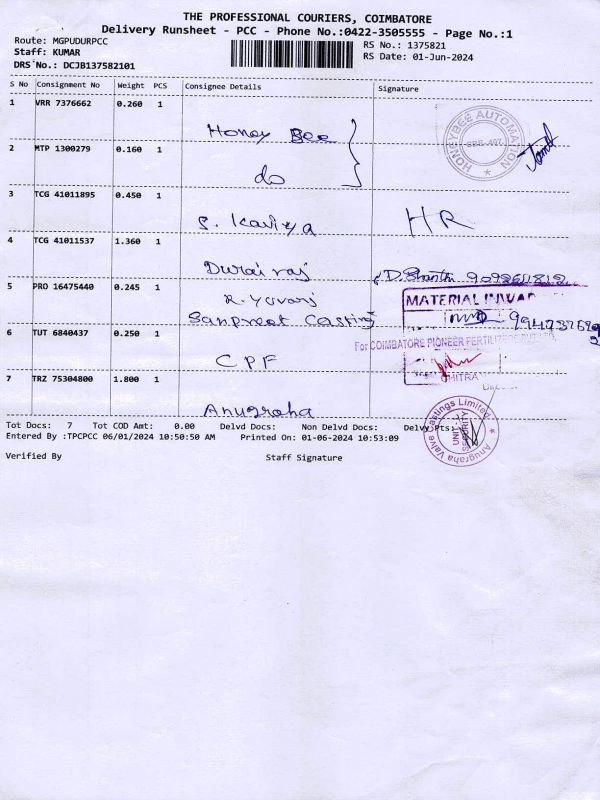 THE PROFESSIONAL COURIERS, COIMBATORE
Delivery Runsheet - PCC - Phone No.:0422-3505555 - Page No.:1
Route: MGPUDURPCC
RS No.: 1375821
Staff: KUMAR
RS Date: 01-Jun-2024
DRS No.: DCJB137582101
S No Consignment No Weight PCS Consignee Details Signature
1 VRR 7376662 0.260 1 Honey Bee
HONEYBEE AUTOMATION
2 MTP 1300279 0.160 1 do
3 TCG 41011895 0.450 1 S. Kaviya HR
4 TCG 41011537 1.360 1 Durairaj
5 PRO 16475440 0.245 1 R. Yuvaraj
MATERIAL INWARD
Sanpreet Casting
6 TUT 6840437 0.250 1 CPF
For COIMBATORE PIONEER FERTILIZERS
CHITRA
7 TRZ 75304800 1.800 1 Anugraha
Anugraha Valve Castings Limited
UNIT-
SECURITY
Tot Docs: 7 Tot COD Amt: 0.00 Delvd Docs: Non Delvd Docs: Delvy Pts:
Entered By :TPCPCC 06/01/2024 10:50:50 AM Printed On: 01-06-2024 10:53:09
Verified By Staff Signature